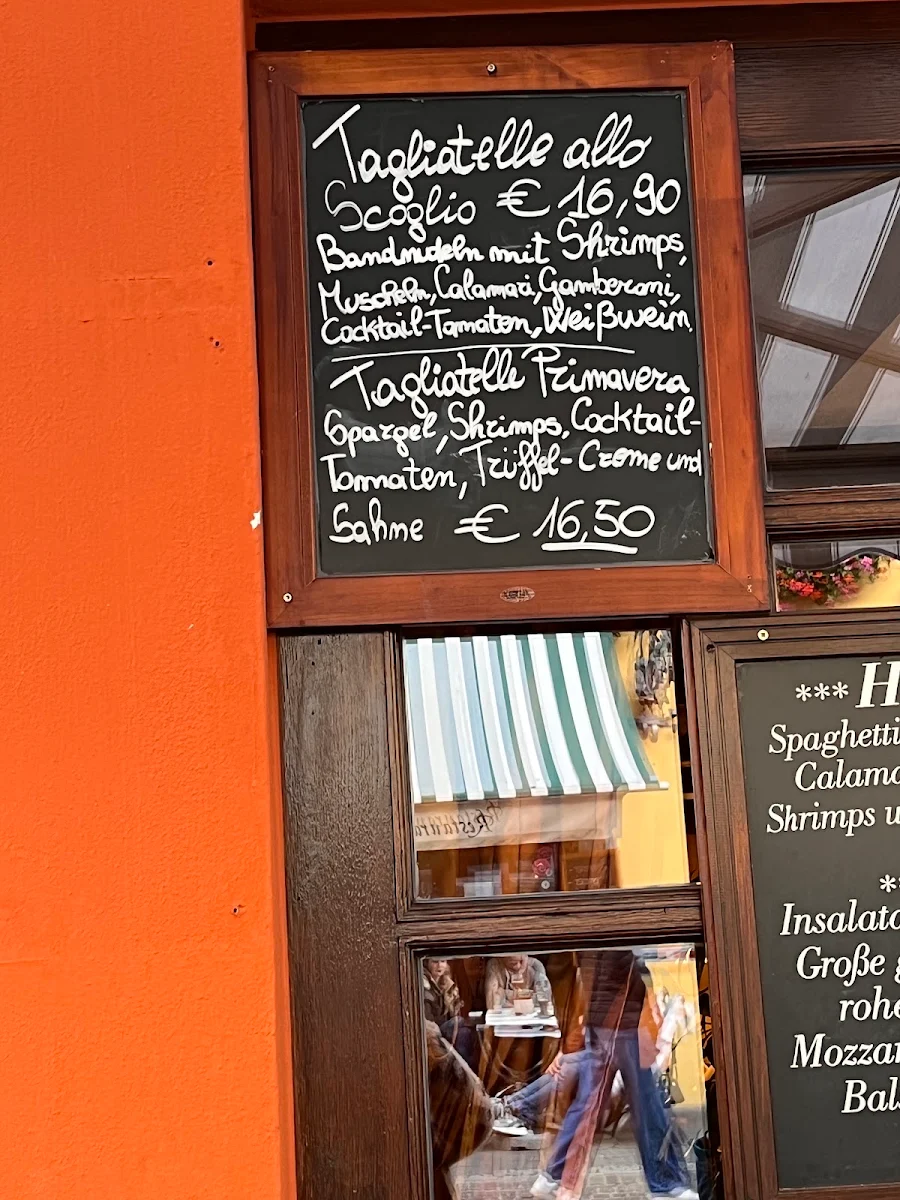 Tagliatelle allo
Scoglio € 16,90
Bandnudeln mit Shrimps,
Muscheln, Calamari, Gamberoni,
Cocktail-Tomaten, Weißwein.
Tagliatelle Primavera
Spargel, Shrimps, Cocktail-
Tomaten, Trüffel-Creme und
Sahne € 16,50
*** H
Spaghetti
Calama
Shrimps u
**
Insalata
Große g
rohe
Mozzar
Bals